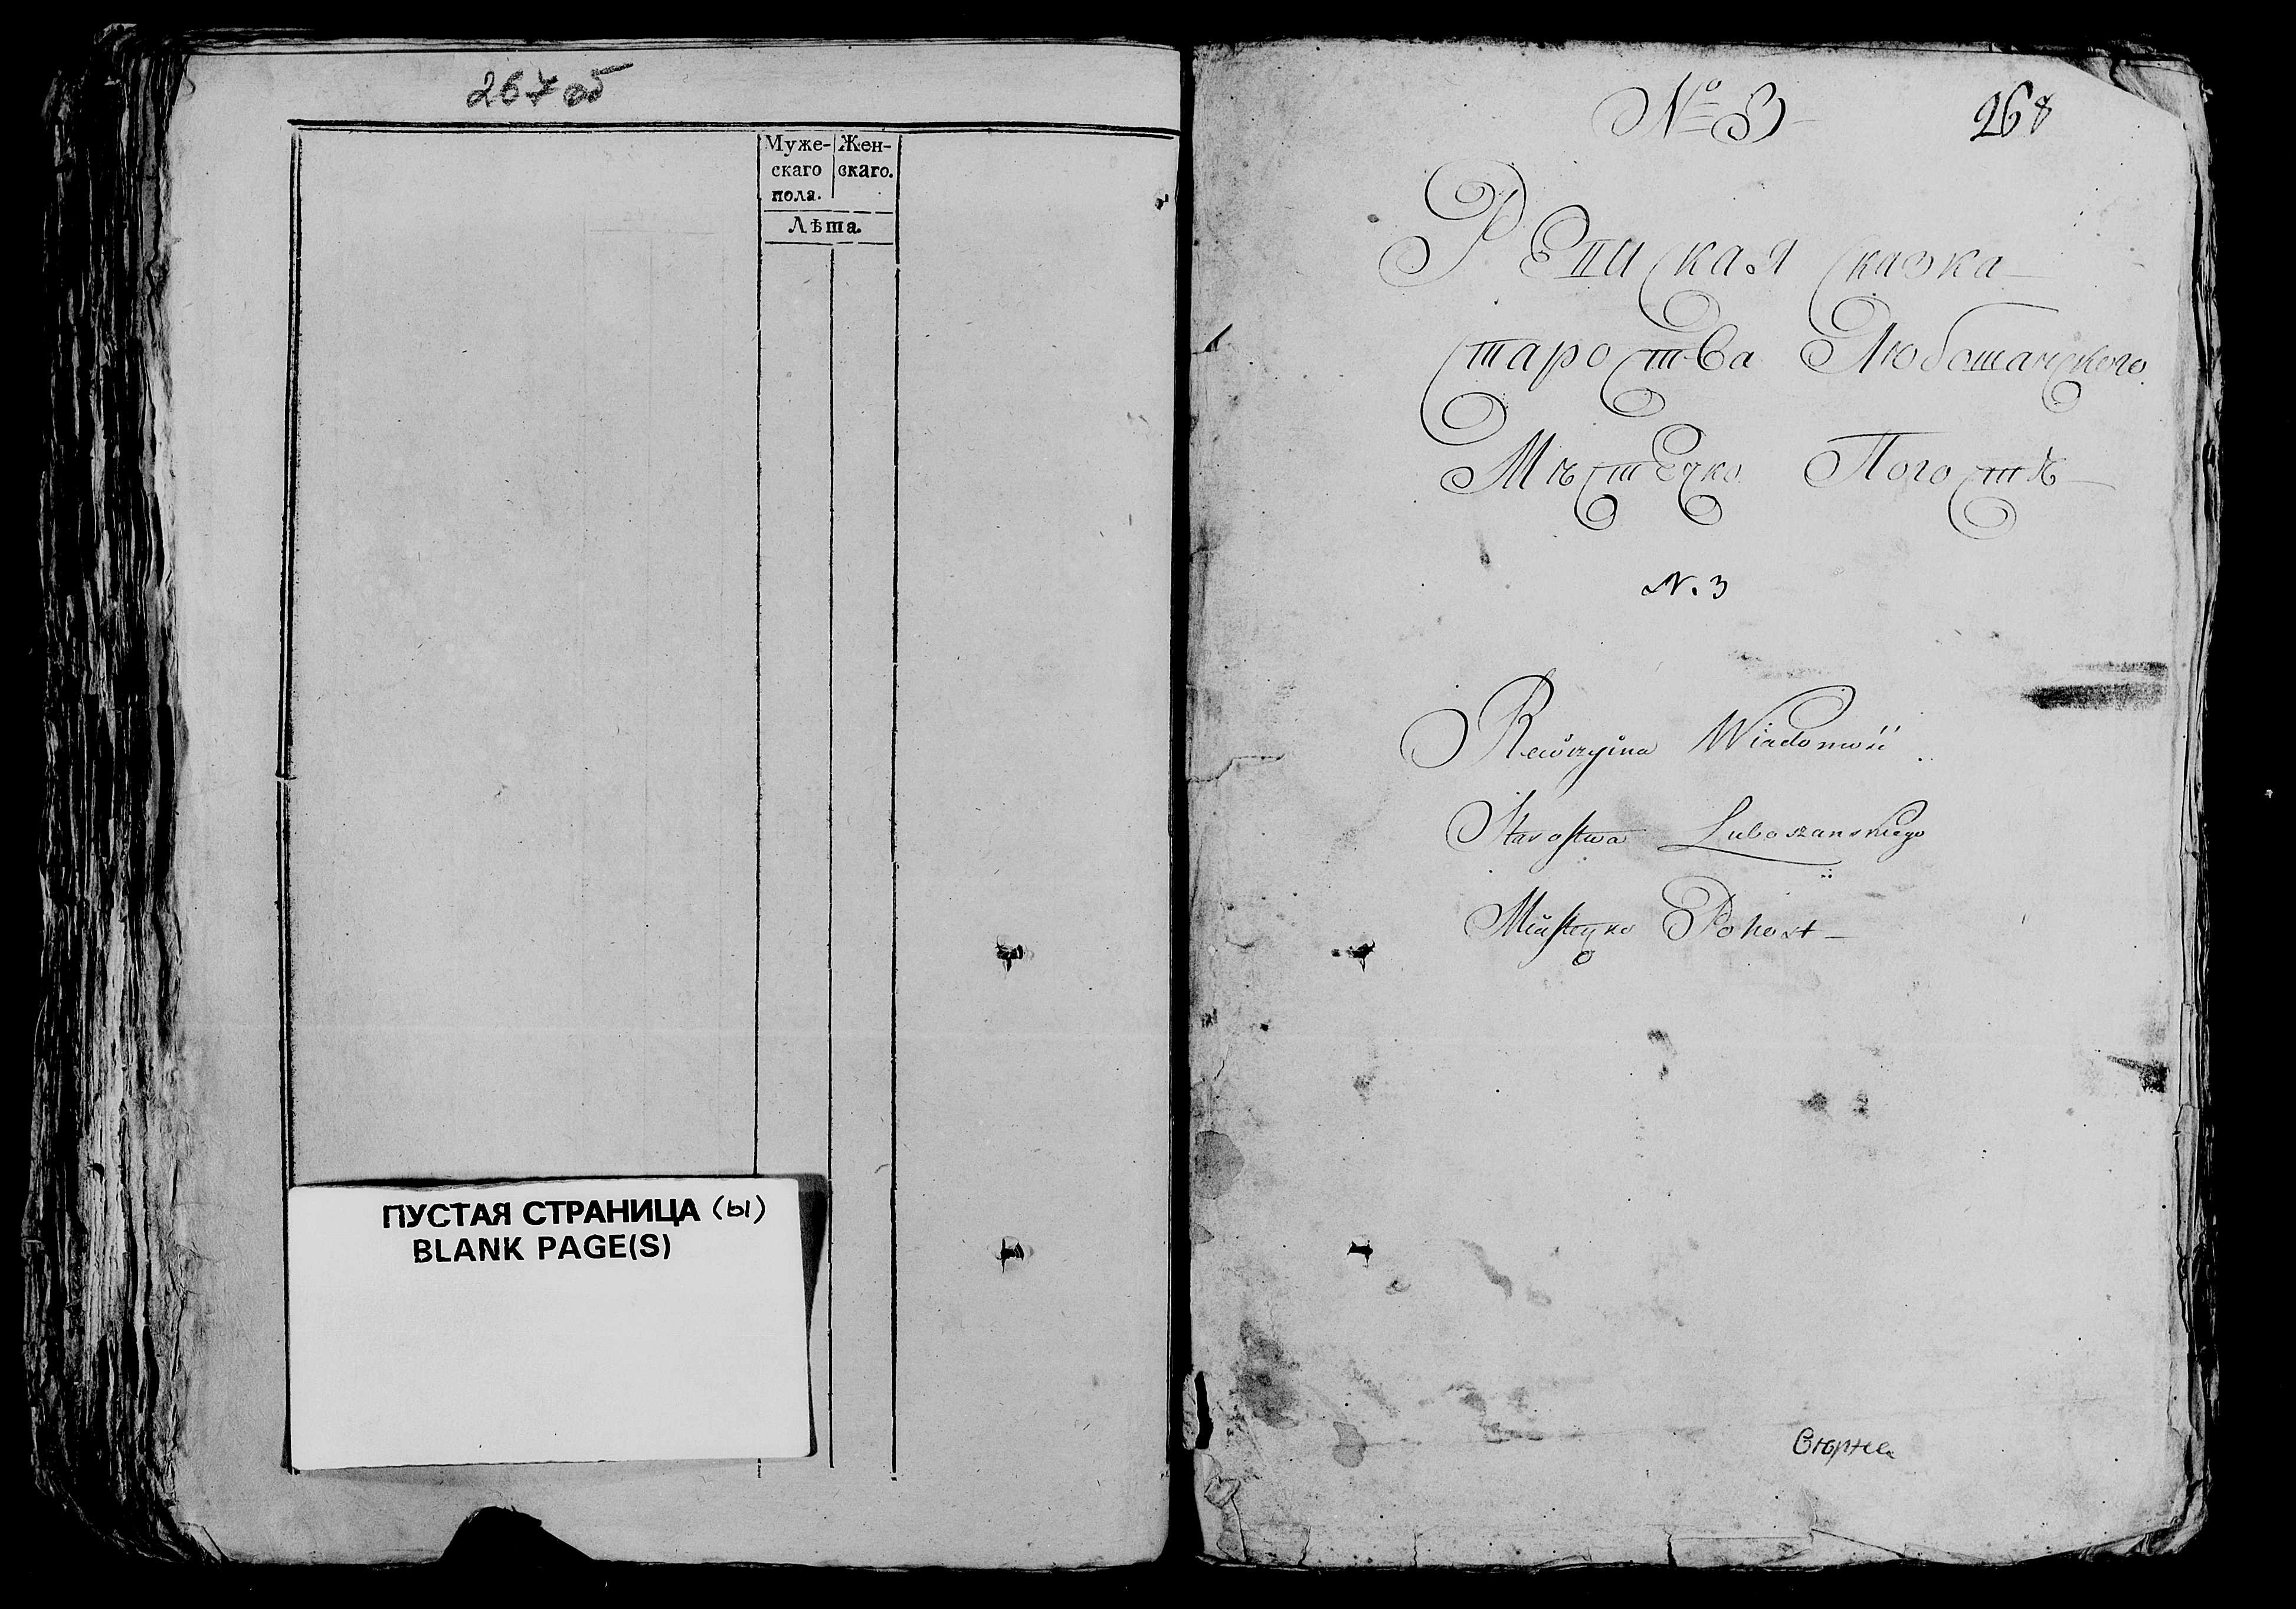 267 об
Муже- Жен-
скаго скаго.
пола.
Лѣта.
ПУСТАЯ СТРАНИЦА (ы)
BLANK PAGE(S)
№ 3
268
Ревиская Сказка
Староства Любошанскаго
Мѣстечко Погостъ
N. 3
Rewizyina Wiadomość
Starostwa Luboszanskiego
Miasteczko Pohost